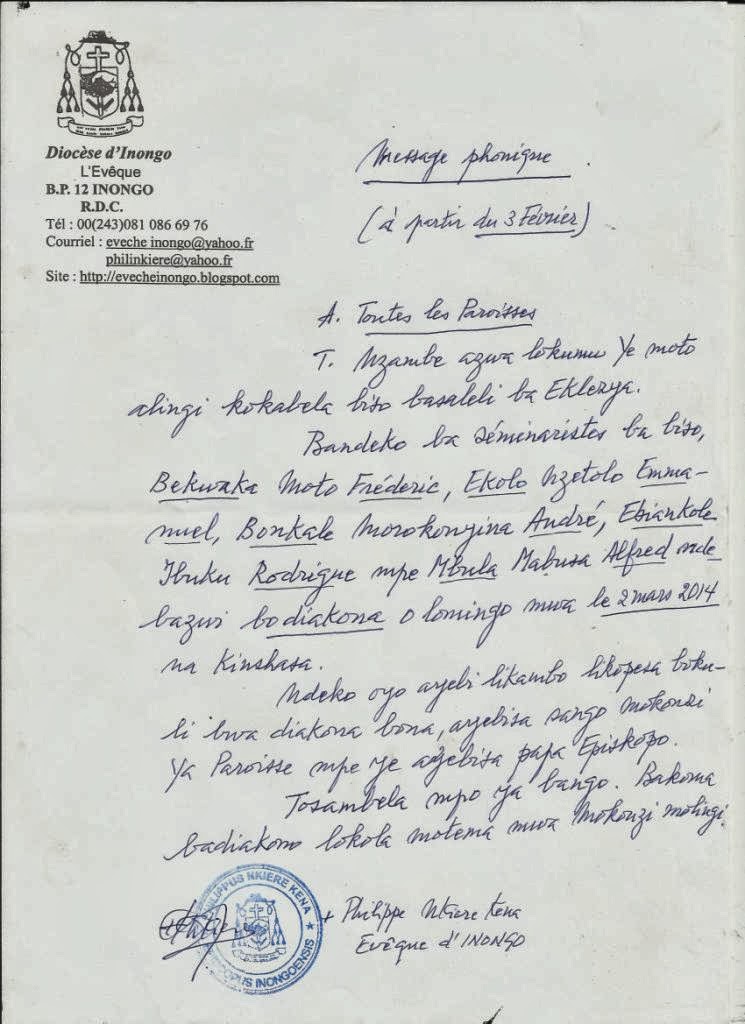 Diocèse d'Inongo
L'Evêque
B.P. 12 INONGO
R.D.C.
Tél : 00(243)081 086 69 76
Courriel : eveche inongo@yahoo.fr
philinkiere@yahoo.fr
Site : http://evecheinongo.blogspot.com
Message phonique
(à partir du 3 Février)
A. Toutes les Paroisses
T. Nzambe azwa lokumu Ye moto
alingi kokabela biso basaleli ba Eklezya.
Bandeko ba séminaristes ba biso,
Bekwaka Moto Fréderic, Ekolo Nzetolo Emma-
nuel, Bonkale Morokonyina André, Ebiankole
Ibuku Rodrigue mpe Mbula Mabusa Alfred nde
bazwi bodiakona o lomingo mwa le 2 mars 2014
na Kinshasa.
Ndeko oyo ayebi likambo likopesa boku-
li bwa diakona bona, ayebisa sango mokonzi
Ya Paroisse mpe ye ayebisa papa Episkopo.
Tosambela mpo ya bango. Bakoma
badiakono lokola motema mwa Mokonzi molingi.
+ Philippe Nkiere Kena
Evêque d'INONGO
PHILIPPUS NKIERE KENA
EPISCOPUS INONGOENSIS